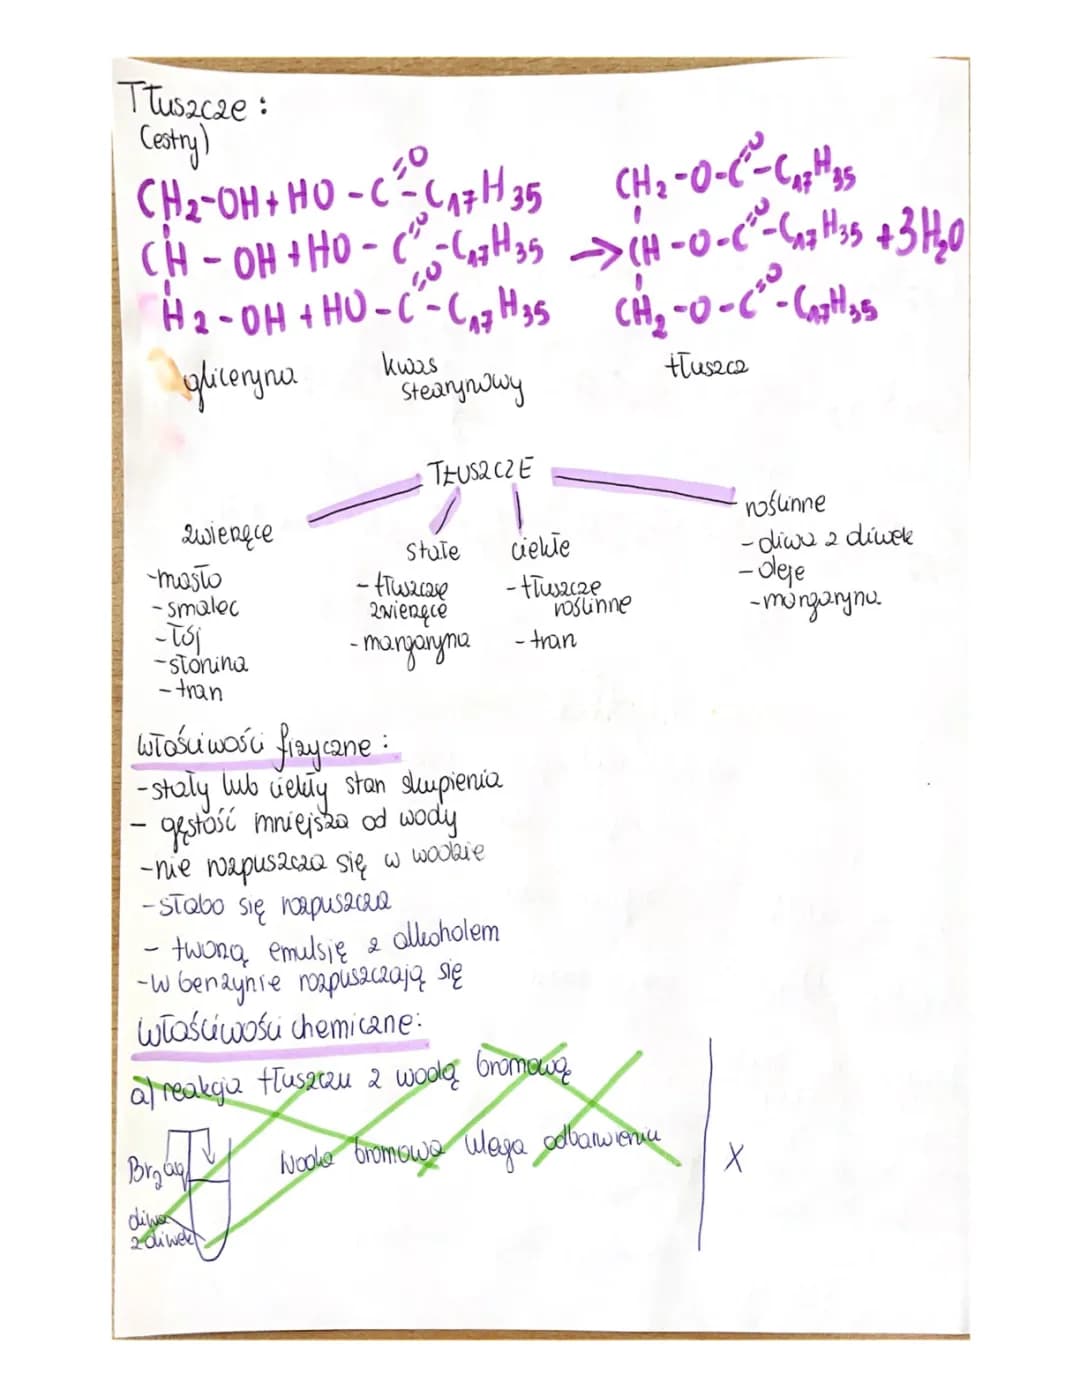 Tłuszcze:
(estry)
CH₂-OH + HO - C=O - C₁₇H35
CH - OH + HO - C=O - C₁₇H35
H₂-OH + HO - C=O - C₁₇H35
→
CH₂-O-C=O-C₁₇H₃₅
CH-O-C=O-C₁₇H₃₅ + 3H₂O
CH₂-O-C=O-C₁₇H₃₅
gliceryna
kwas
stearynowy
tłuszcz
TŁUSZCZE
zwierzęce
-masło
-smalec
-łój
-słonina
-tran
stałe
-tłuszcze
zwierzęce
-margaryna
ciekłe
-tłuszcze
roślinne
-tran
roślinne
-oliwa z oliwek
-oleje
-margaryna
właściwości fizyczne:
-stały lub ciekły stan skupienia
- gęstość mniejsza od wody
-nie rozpuszcza się w wodzie
-słabo się rozpuszcza
- tworzą emulsję z alkoholem
-w benzynie rozpuszczają się
właściwości chemiczne:
a) reakcja tłuszczu z wodą bromową
Br₂aq
oliwa
z oliwek
woda bromowa ulega odbarwieniu
X